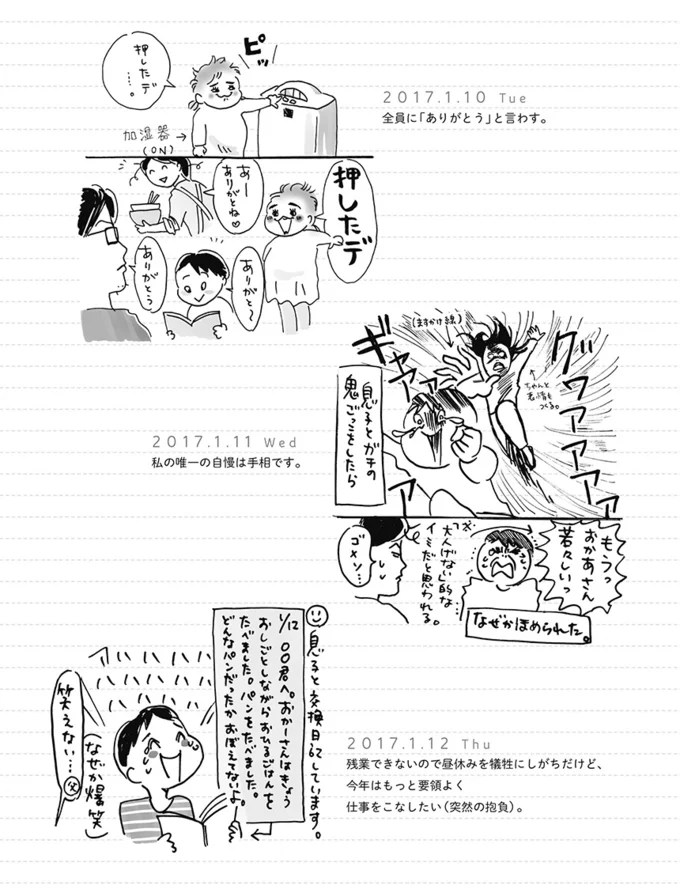 ピッ
押したデ
…。
加湿器→
(ON)
2017.1.10 Tue
全員に「ありがとう」と言わす。
押したデ
あー
ありがとね♡
ありがと〜
ありがとう
(ますかけ線)
グワァァァァァ
ギャァァァ
ア
↑
ちゃんと
表情も
つくる。
息子とガチの
鬼ごっこをしたら
2017.1.11 Wed
私の唯一の自慢は手相です。
もうっ
おかあさん
若々しいっ
※
「大人げない」的な
イミだと思われる。
ゴメン…
なぜかほめられた。
息子と交換日記しています。
1/12
〇〇君へ。おかーさんはきょう
おしごとしながらおひるごはんを
たべました。パンをたべました。
どんなパンだったかおぼえてないよ。
ハハハハハハ
(なぜか爆笑)
笑えない…父
2017.1.12 Thu
残業できないので昼休みを犠牲にしがちだけど、
今年はもっと要領よく
仕事をこなしたい（突然の抱負）。